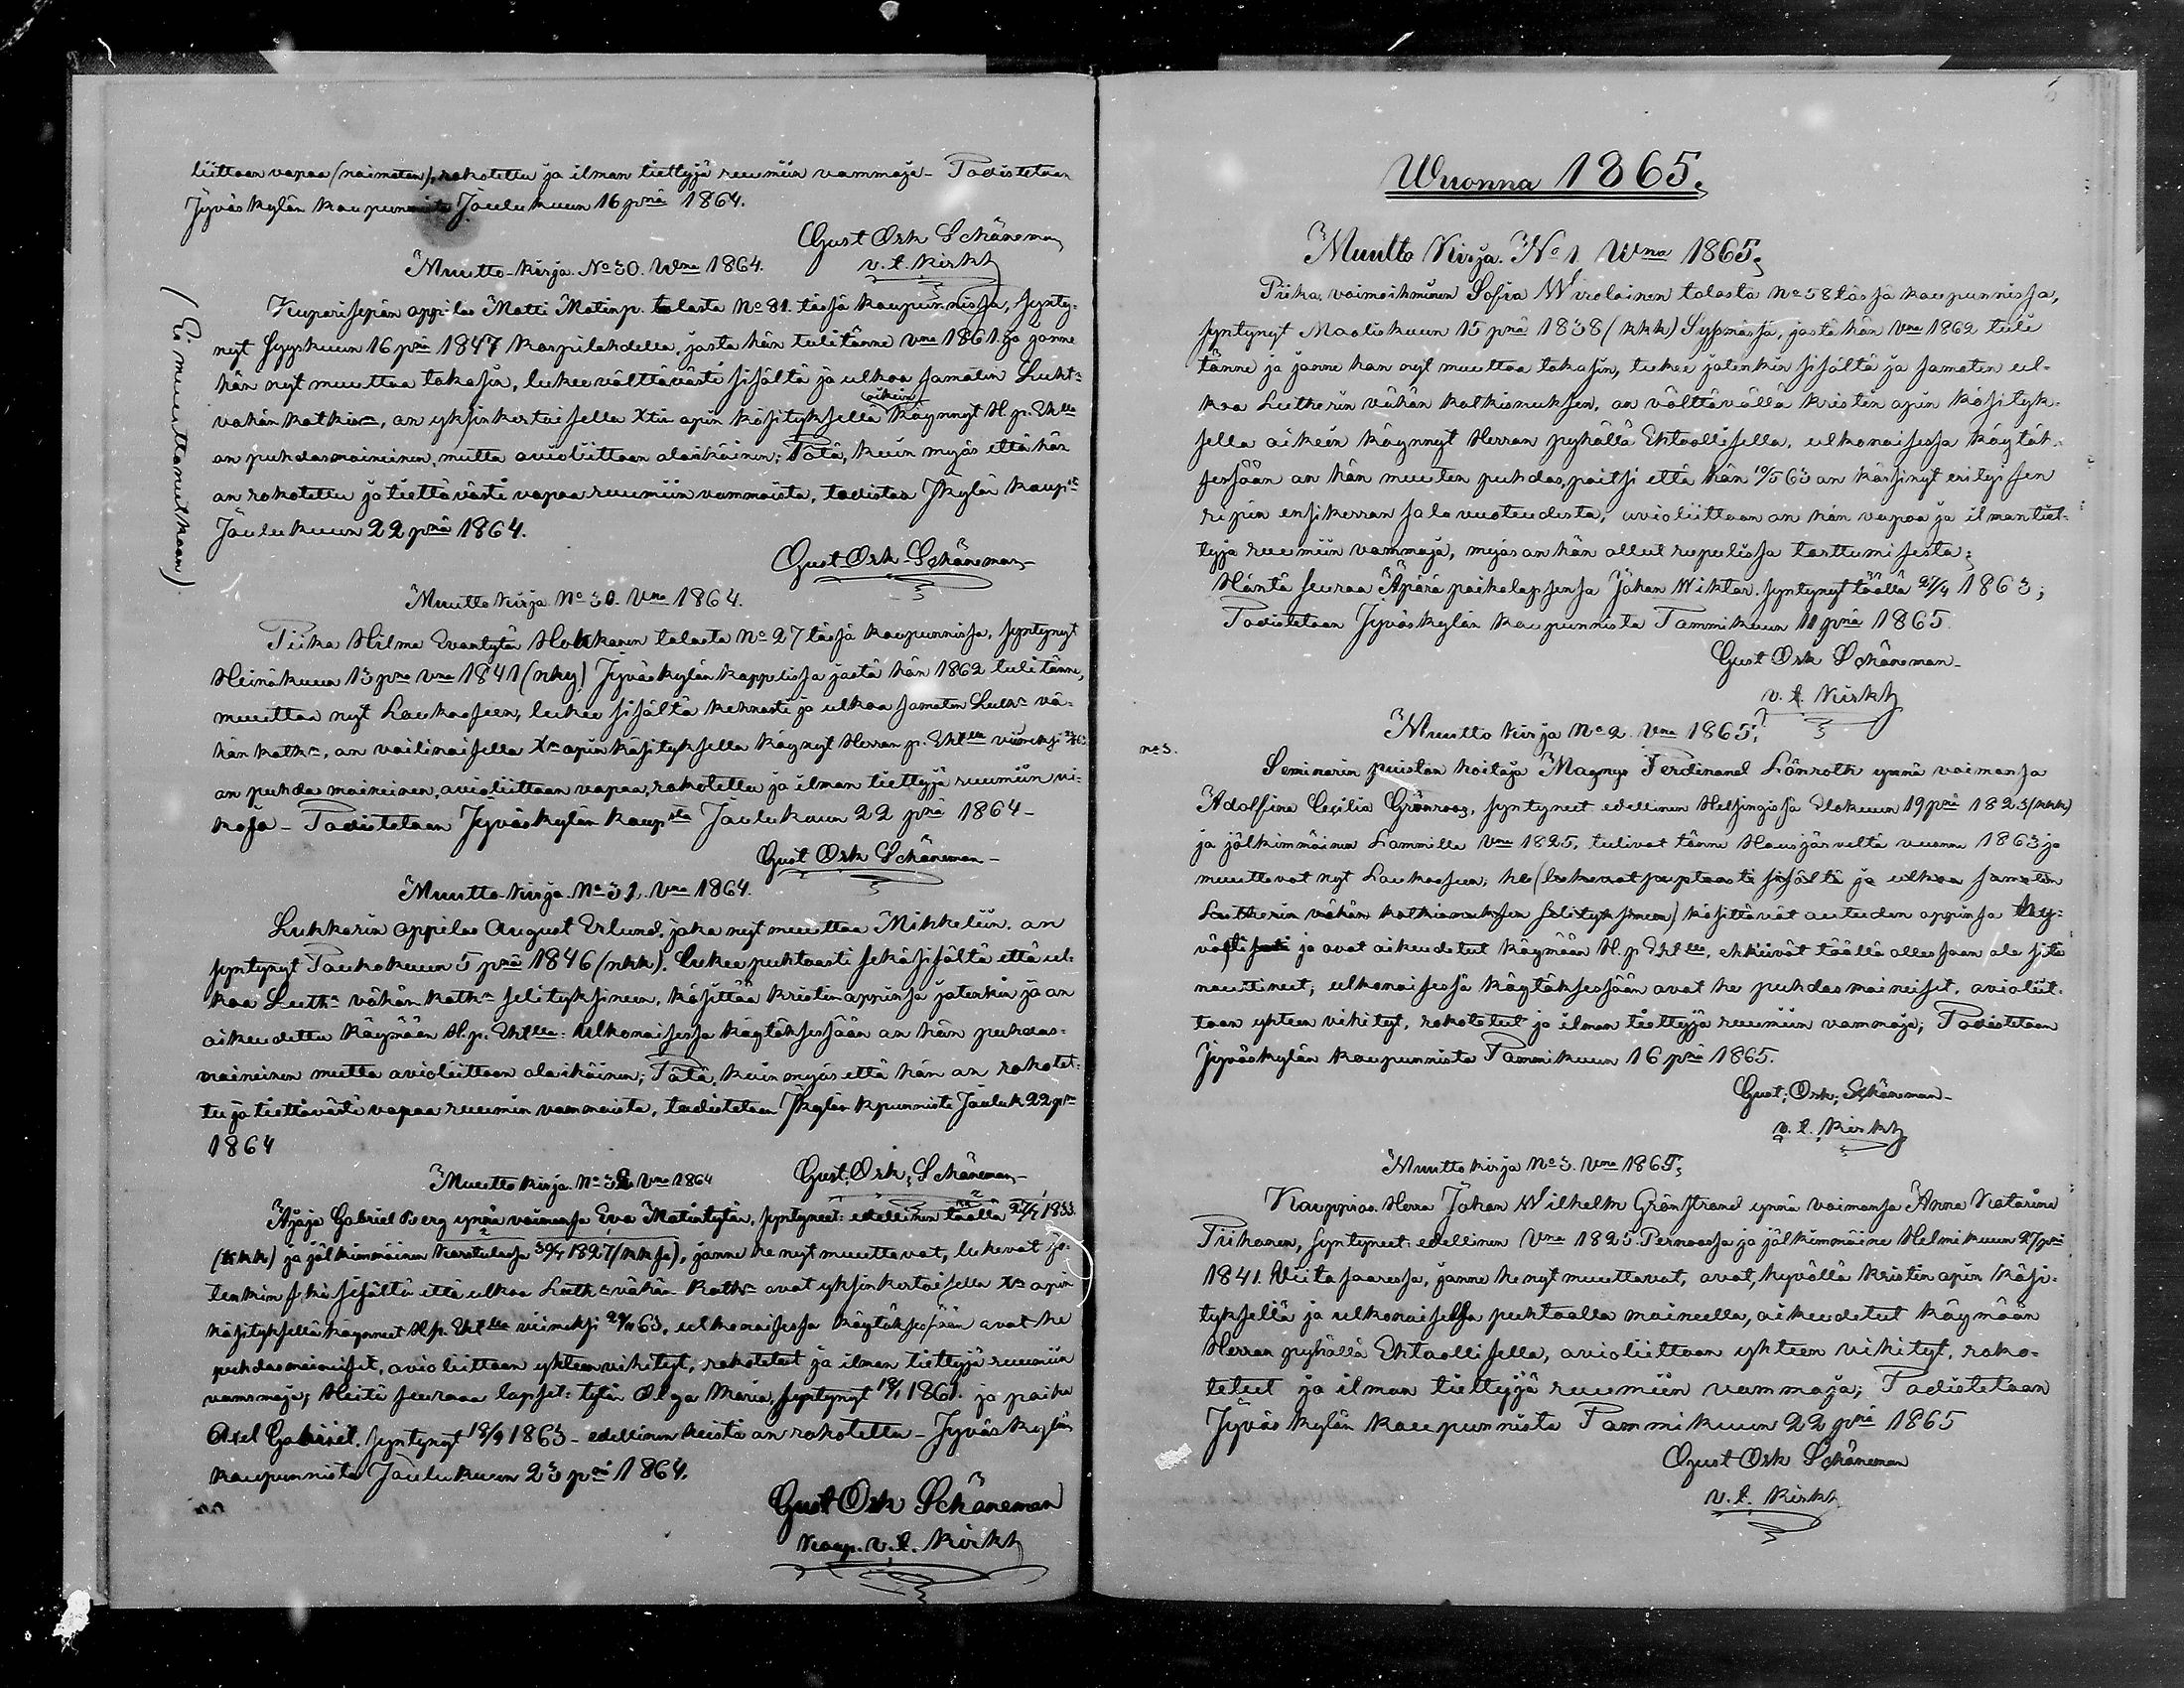 liittoon vapaa (naimaton), rokotettu ja ilman tiettyjä ruumiin vammoja – Todistetaan
Jyväskylän kaupunnista Joulukuun 16 pnä 1864.
Gust Osk Schöneman
v. t. Kirkkh
Muutto-kirja No 30. Wna 1864.
Kuparisepän oppilas Matti Matinp. talosta No 81. tässä kaupunnissa, synty-
nyt Syyskuun 16 pnä 1847 Korpilahdella, josta hän tuli tänne vna 1861. ja jonne
hän nyt muuttaa takasin, lukee välttävästi sisältä ja ulkoa samatin Luht:
vähän katkin, on yksinkertaisella Xtin opin käsityksellä oikein käynnyt H. p. Ehtlla
on puhdasmaineinen, mutta avioliittoon alaikäinen; Tätä, kuin myös että hän
on rokotettu ja tiettävästi vapaa ruumiin vammoista, todistaa Jkylän Kaupsta
Joulukuun 22 pnä 1864.
Gust Osk Schöneman
(Ei muuttanutkaan)
Muutto kirja No 30. Vna 1864.
Piika Hilma Evantytär Hokkanen talosta No 27 tässä kaupunnissa, syntynyt
Heinäkuun 13 pnä vna 1841 (nky) Jyväskylän kappelissa josta hän 1862 tuli tänne,
muuttaa nyt Laukaaseen, lukee sisältä kehnosti ja ulkoa samaten Luth: vä-
hän kath:, on vailinaisella Xn opin käsityksellä käynyt Herran p. Ehtlla viimeksi
on puhdas maineinen, avioliittoon vapaa, rokotettu ja ilman tiettyjä ruumiin vi-
koja – Todistetaan Jyväskylän kaupsta Joulukuun 22 pnä 1864 –
Gust Osk Schöneman –
Muutto-kirja No 31. Vna 1864.
Lukkarin oppilas August Erlund, joka nyt muuttaa Mikkeliin. on
syntynyt Toukokuun 5 pnä 1846 (nkk). Lukee puhtaasti sekä sisältä että ul-
koa Luth: vähän kath: selityksineen, käsittää kristin oppinsa jotenkin ja on
oikeudettu käymään H. p. Ehtlla: Ulkonaisessa käytöksessään on hän puhdas-
maineinen mutta avioliittoon alaikäinen; Tätä, kuin myös että hän on rokotet-
tu ja tiettävästi vapaa ruumin vammoista, todistetaan Jkylän kpunnista Jouluk 22 pn
1864
Gust. Osk. Schöneman –
Muutto kirja No 32 Vna 1864
Ajaja Gabriel Berg ynnä vaimonsa Eva Matintytär, syntyneet: edellinen täällä 27/1 1833
(kkk) ja jälkimmäinen Karstulassa 30/7 1827 (kksa), jonne he nyt muuttavat, lukevat jo-
tenkin sekä sisältä että ulkoa Luth: vähän Kath: ovat yksinkertaisella Xn opin
käsityksellä käynneet H. p. Ehtlla viimeksi 63, ulkonaisessa käytöksessään ovat he
puhdasmaineiset, avioliittoon yhteen vihityt, rokotetut ja ilman tiettyjä ruumiin
vammoja; Heitä seuraa lapset: tytär Olga Maria, syntynyt 18/1 1861. ja poika
Axel Gabriel, syntynyt 18/9 1863 – edellinen heistä on rokotettu – Jyväskylän
kaupunnista Joulukuun 23 pnä 1864.
Gust Osk Schöneman
Kaup. v. t. Kirkkh
Wuonna 1865.
Muutto Kirja. No 1. Wna 1865.
Piika, vaimoihminen Sofia Wirolainen talosta No 58 tässä kaupunnissa,
syntynyt Maaliskuun 15 pnä 1838 (kkk) Sysmässä, josta hän Vna 1862 tuli
tänne ja jonne hän nyt muuttaa takasin, lukee jotenkin sisältä ja samaten ul-
koa Lutherin vähän katkismuksen, on välttävällä kristin opin käsityk-
sellä oikein käynnyt Herran pyhällä Ehtoollisella, ulkonaisessa käytök-
sessään on hän muuten puhdas, paitsi että hän 10/5 63 on kärsinyt erityisen
ripin ensikerran salavuoteudesta, avioliittoon on hän vapaa ja ilman tiet-
tyjä ruumiin vammoja, myös on hän ollut rupulissa tarttumisesta;
Häntä seuraa Äpärä poikalapsensa Johan Wiktor, syntynyt täällä 27/4 1863;
Todistetaan Jyväskylän kaupunnista Tammikuun 11 pnä 1865.
Gust Osk Schöneman –
v. t. Kirkkh
Muutto kirja No 2. Vna 1865.
no 3.
Seminarin puiston hoitaja Magnus Ferdinand Lönroth ynnä vaimonsa
Adolfina Cecilia Grönroos, syntyneet edellinen Helsingissä Elokuun 19 pnä 1823 (kkk)
ja jälkimmäinen Lammilla Vna 1825, tulivat tänne Hausjärveltä vuonna 1863 ja
muuttavat nyt Laukaaseen, he (lukevat puhtaasti sisältä ja ulkoa samaten
Lutherin vähän katkismuksen selityksineen) käsittävät autuuden oppinsa
ja ovat oikeudetut käymään H. p. Ehtlle, ehkeivät täällä ollessaan ole sitä
nauttineet; ulkonaisessa käytöksessään ovat he puhdasmaineiset, avioliit-
toon yhteen vihityt, rokotetut ja ilman tiettyjä ruumiin vammoja; Todistetaan
Jyväskylän kaupunnista Tammikuun 16 pnä 1865.
Gust. Osk. Schöneman –
v. t. Kirkkh
Muutto kirja No 3. Vna 1865.
Kauppias Herra Johan Wilhelm Grönstrand ynnä vaimonsa Anna Katarina
Piikanen, syntyneet: edellinen Vna 1825 Pernoossa ja jälkimmäine Helmikuun 27 pnä
1841. Wiitasaaressa, jonne he nyt muuttavat, ovat, hyvällä kristin opin käsi-
tyksellä ja ulkonaisessa puhtaalla maineella, oikeudetut käymään
Herran pyhällä Ehtoollisella, avioliittoon yhteen vihityt, roko-
tetut ja ilman tiettyjä ruumiin vammoja; Todistetaan
Jyväskylän kaupunnista Tammikuun 22 pnä 1865
Gust Osk Schöneman
v. t. Kirkkh